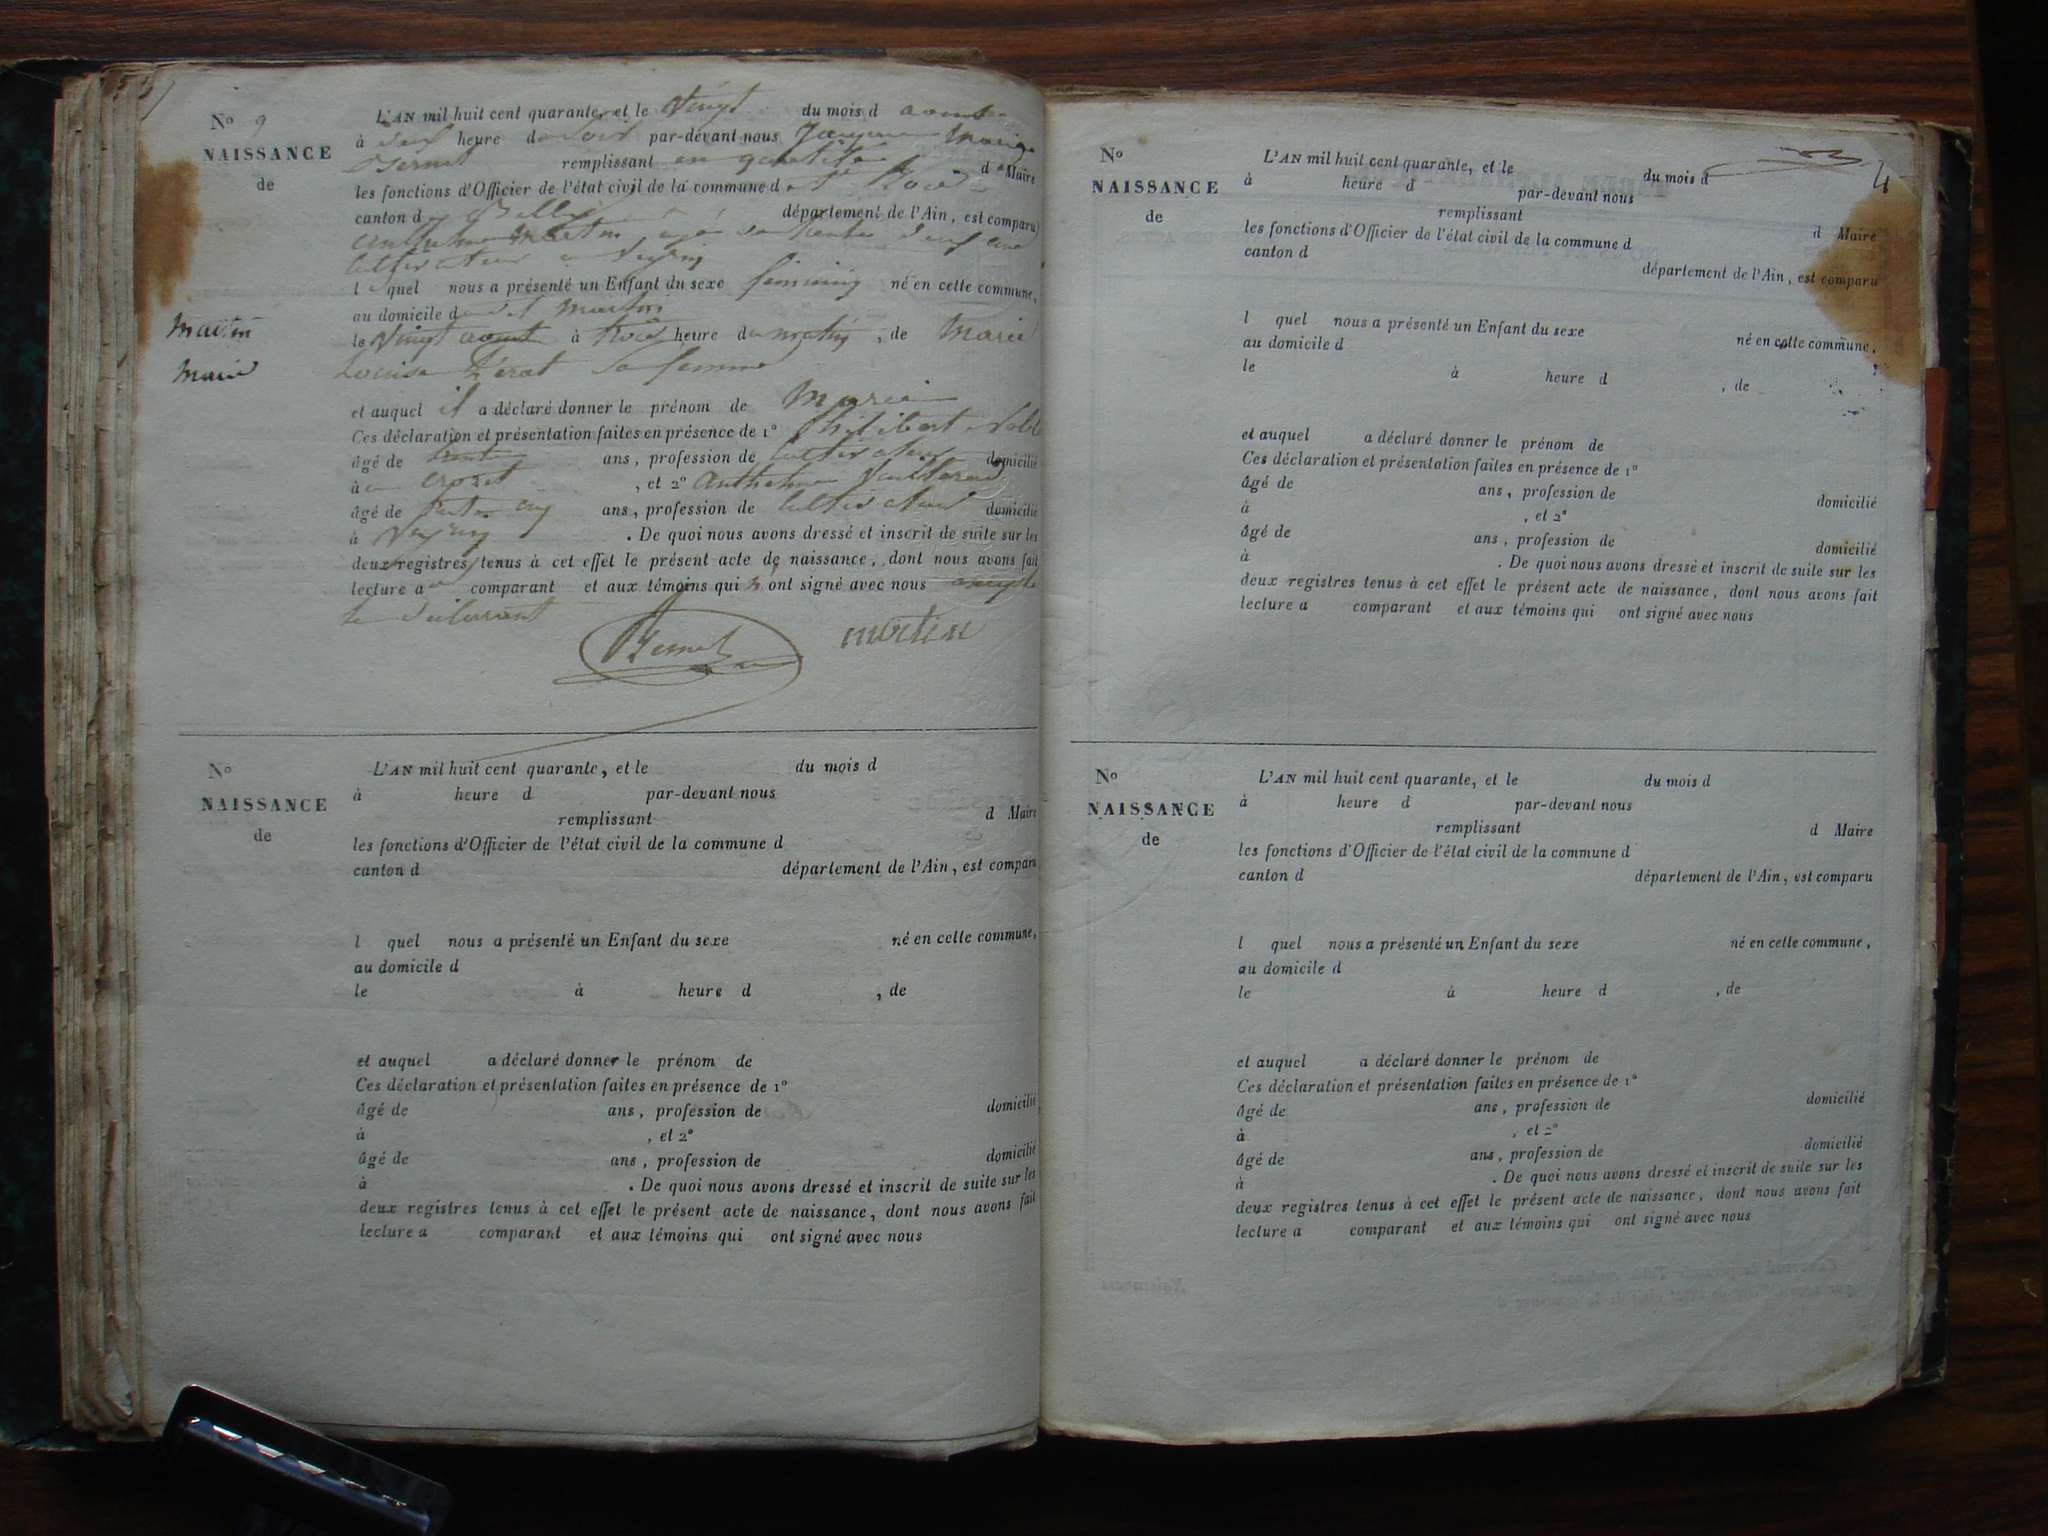 No 9
NAISSANCE
de
Martin
Marie
L'AN mil huit cent quarante, et le Vingt du mois d aout
à heure du soir par-devant nous
Bernet remplissant en qualité de Maire
les fonctions d'Officier de l'état civil de la commune d
canton de Belley département de l'Ain, est comparu
anthelme Martin âgé de trente neuf ans
cultivateur a Veyrin
l quel nous a présenté un Enfant du sexe féminin né en cette commune,
au domicile dudit Martin
le Vingt aout à trois heure du matin, de Marie
Louise sa femme
et auquel il a déclaré donner le prénom de Marie
Ces déclaration et présentation faites en présence de 1° Philibert
âgé de trente ans, profession de cultivateur domicilié
à a crozet, et 2° Anthelme
âgé de ans, profession de cultivateur domicilié
à Veyrin. De quoi nous avons dressé et inscrit de suite sur les
deux registres tenus à cet effet le présent acte de naissance, dont nous avons fait
lecture au comparant et aux témoins qui n'ont signé avec nous excepté
le déclarant
Bernet martin
No
NAISSANCE
de
L'AN mil huit cent quarante, et le du mois d
à heure d par-devant nous
remplissant d Maire
les fonctions d'Officier de l'état civil de la commune d
canton d département de l'Ain, est comparu
l quel nous a présenté un Enfant du sexe né en cette commune,
au domicile d
le à heure d , de
et auquel a déclaré donner le prénom de
Ces déclaration et présentation faites en présence de 1°
âgé de ans, profession de domicilié
à , et 2°
âgé de ans, profession de domicilié
à . De quoi nous avons dressé et inscrit de suite sur les
deux registres tenus à cet effet le présent acte de naissance, dont nous avons fait
lecture a comparant et aux témoins qui ont signé avec nous
4
No
NAISSANCE
de
L'AN mil huit cent quarante, et le du mois d
à heure d par-devant nous
remplissant d Maire
les fonctions d'Officier de l'état civil de la commune d
canton d département de l'Ain, est comparu
l quel nous a présenté un Enfant du sexe né en cette commune,
au domicile d
le à heure d , de
et auquel a déclaré donner le prénom de
Ces déclaration et présentation faites en présence de 1°
âgé de ans, profession de domicilié
à , et 2°
âgé de ans, profession de domicilié
à . De quoi nous avons dressé et inscrit de suite sur les
deux registres tenus à cet effet le présent acte de naissance, dont nous avons fait
lecture a comparant et aux témoins qui ont signé avec nous
No
NAISSANCE
de
L'AN mil huit cent quarante, et le du mois d
à heure d par-devant nous
remplissant d Maire
les fonctions d'Officier de l'état civil de la commune d
canton d département de l'Ain, est comparu
l quel nous a présenté un Enfant du sexe né en cette commune,
au domicile d
le à heure d , de
et auquel a déclaré donner le prénom de
Ces déclaration et présentation faites en présence de 1°
âgé de ans, profession de domicilié
à , et 2°
âgé de ans, profession de domicilié
à . De quoi nous avons dressé et inscrit de suite sur les
deux registres tenus à cet effet le présent acte de naissance, dont nous avons fait
lecture a comparant et aux témoins qui ont signé avec nous